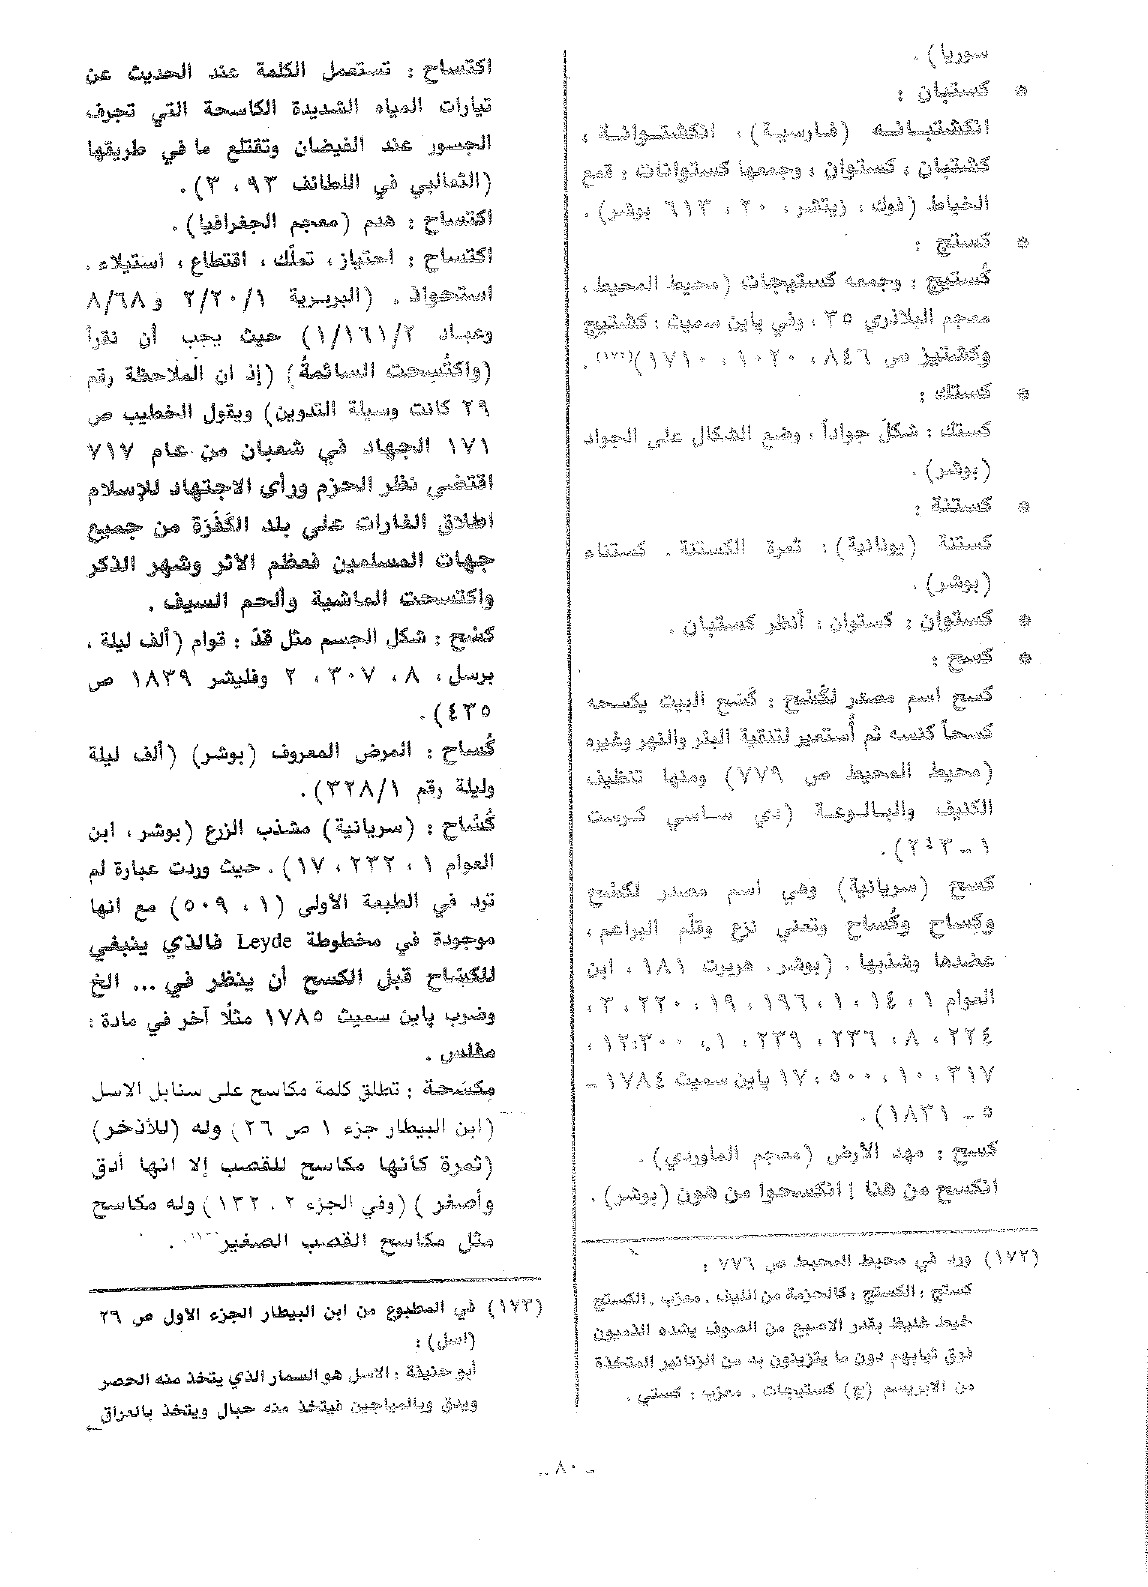 سوريا) .
* كستبان :
انكشتبانه (فارسية) ، انكشتوانة ،
كشتبان ، كستوان ، وجمعها كستوانات : قمع
الخياط (فوك ، زيتشر ، ٢٠ ، ٦١٣ بوشر) .
* كستج :
كُستيج : وجمعه كستيجات (محيط المحيط ،
معجم البلاذري ٣٥ ، وفي پاين سميث : كشتيج
وكشتيز ص ٨٤٦ ، ١٠٢٠ ، ١٧١٠)(١٧٢) .
* كستك :
كستك : شكلَ جواداً ، وضع الشكال على الجواد
(بوشر) .
* كستنة :
كستنة (يونانية) : ثمرة الكستنة . كستناه
(بوشر) .
* كستوان : كستوان : أنظر كستبان .
* كسح :
كسح اسم مصدر لكَسَح : كَسَح البيت يكسحه
كسحاً كنسه ثم أُستعير لتنقية البئر والنهر وغيره
(محيط المحيط ص ٧٧٩) ومنها تنظيف
الكنيف والبالوعة (دي ساسي كرست
١ ـ ٢٤٣) .
كسح (سريانية) وهي اسم مصدر لكَسَح
وكِساح وكُساح وتعني نزع وقلّم البراعم ،
عضدها وشذبها . (بوشر ، هربرت ١٨١ ، ابن
العوام ١ ، ١٤ ، ١٠ ، ١٩٦ ، ١٩ ، ٢٢٠ ، ٣ ،
٢٢٤ ، ٨ ، ٢٣٦ ، ٢٣٩ ، ١ ، ٣٠٠ ، ١٢ ،
٣١٧ ، ١٠ ، ٥٠٠ ، ١٧ ؛ پاين سميث ١٧٨٤ ـ
٥ ـ ١٨٣١) .
كسح : مهد الأرض (معجم الماوردي) .
انكسح من هنا ! انكسحوا من هون (بوشر) .
(١٧٢) ورد في محيط المحيط ص ٧٧٦ :
كستج : الكستج : كالحزمة من الليف . معرب . الكستج
خيط غليظ بقدر الاصبع من الصوف يشده الذميون
فوق ثيابهم دون ما يتزينون به من الزنانير المتخذة
من الابريسم (ج) كستيجات . معرّب : كستي .
اكتساح : تستعمل الكلمة عند الحديث عن
تيارات المياه الشديدة الكاسحة التي تجرف
الجسور عند الفيضان وتقتلع ما في طريقها
(الثعالبي في اللطائف ٩٣ ، ٣) .
اكتساح : هدم (معجم الجغرافيا) .
اكتساح : احتياز ، تملّك ، اقتطاع ، استيلاء .
استحواذ . (البربرية ٢/٢٠/١ و ٨/٦٨
وعباد ١/١٦١/٢) حيث يجب أن نقرأ
(واكتُسِحت السائمةُ) (إذ ان الملاحظة رقم
٢٩ كانت وسيلة التدوين) ويقول الخطيب ص
١٧١ الجهاد في شعبان من عام ٧١٧
اقتضى نظر الحزم ورأى الاجتهاد للإسلام
اطلاق الغارات على بلد الكَفَرَة من جميع
جهات المسلمين فعظم الاثر وشهر الذكر
واكتسحت الماشية وألحم السيف .
كَسْح : شكل الجسم مثل قدّ : قوام (ألف ليلة ،
برسل ، ٨ ، ٣٠٧ ، ٢ وفليشر ١٨٣٩ ص
٤٣٥) .
كُساح : المرض المعروف (بوشر) (ألف ليلة
وليلة رقم ٣٢٨/١) .
كُسّاح : (سريانية) مشذب الزرع (بوشر ، ابن
العوام ١ ، ٢٣٢ ، ١٧) . حيث وردت عبارة لم
ترد في الطبعة الأولى (١ ، ٥٠٩) مع انها
موجودة في مخطوطة Leyde فالذي ينبغي
للكسّاح قبل الكسح أن ينظر في ... الخ
وضرب پاين سميث ١٧٨٥ مثلًا آخر في مادة :
مقلس .
مكسَحة : تطلق كلمة مكاسح على سنابل الاسل
(ابن البيطار جزء ١ ص ٢٦) وله (للأذخر)
(ثمرة كأنها مكاسح للقصب إلا انها أدق
وأصغر) (وفي الجزء ٢ ، ١٣٢) وله مكاسح
مثل مكاسح القصب الصغير .
(١٧٣) في المطبوع من ابن البيطار الجزء الاول ص ٢٦
(اسل) :
أبو حنيفة : الاسل هو السمار الذي يتخذ منه الحصر
ويدق وبالمياجين فيتخذ منه حبال ويتخذ بالعراق
ـ ٨٠ ـ